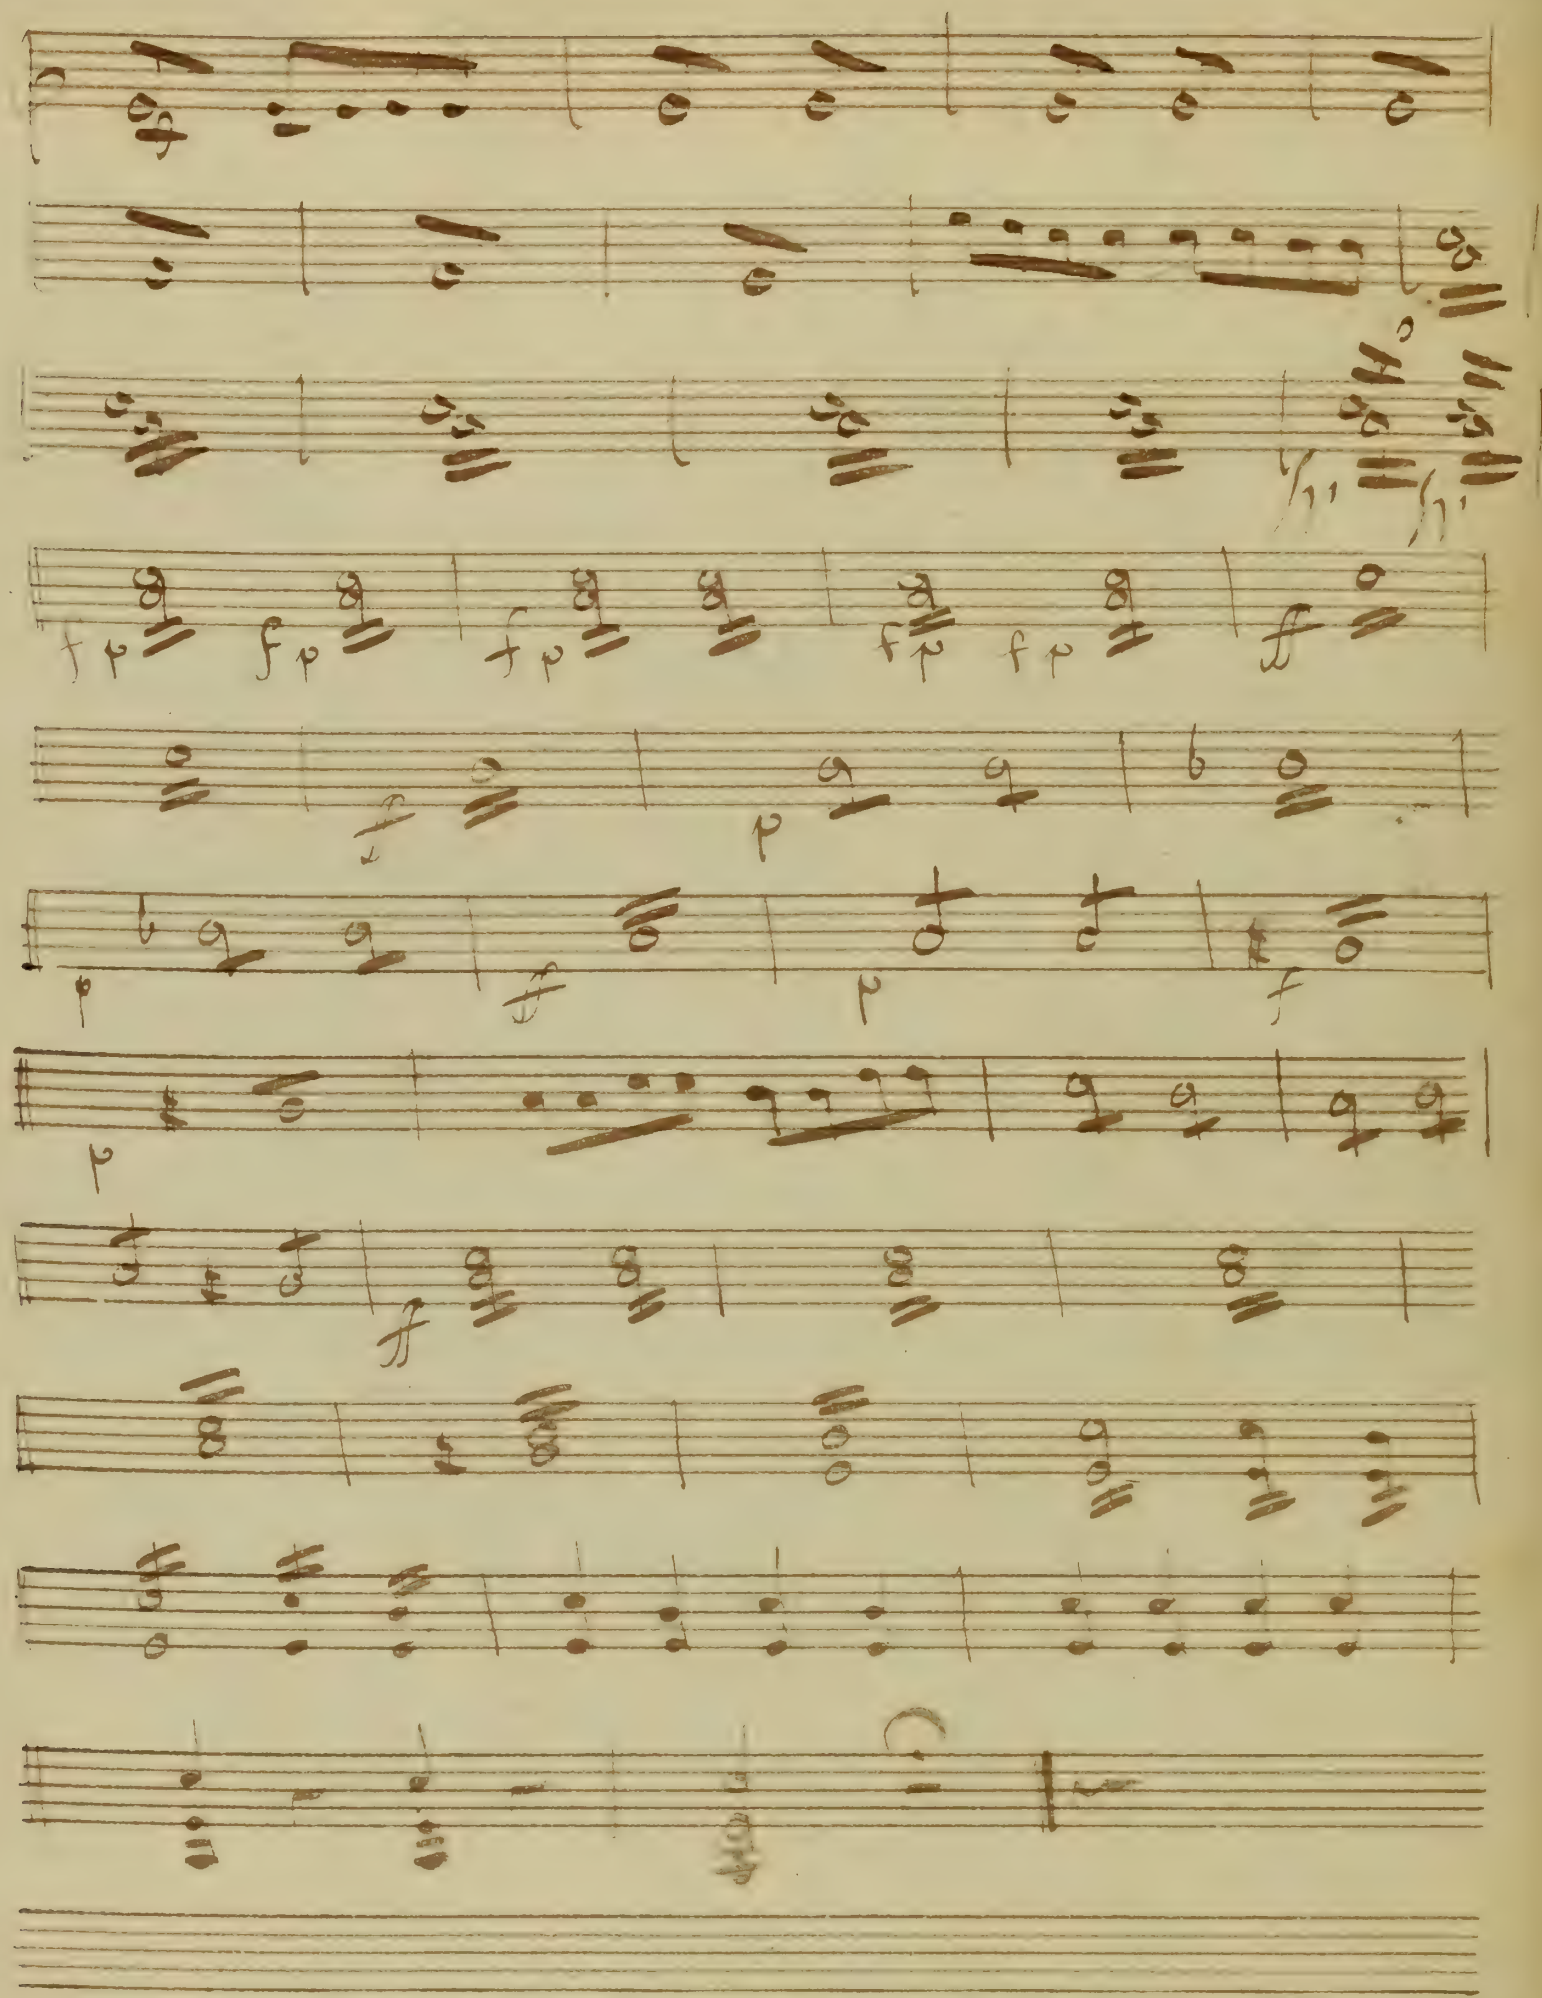 f
fp fp
fp fp fp fp fp ff
ff p
p ff p f
p
ff